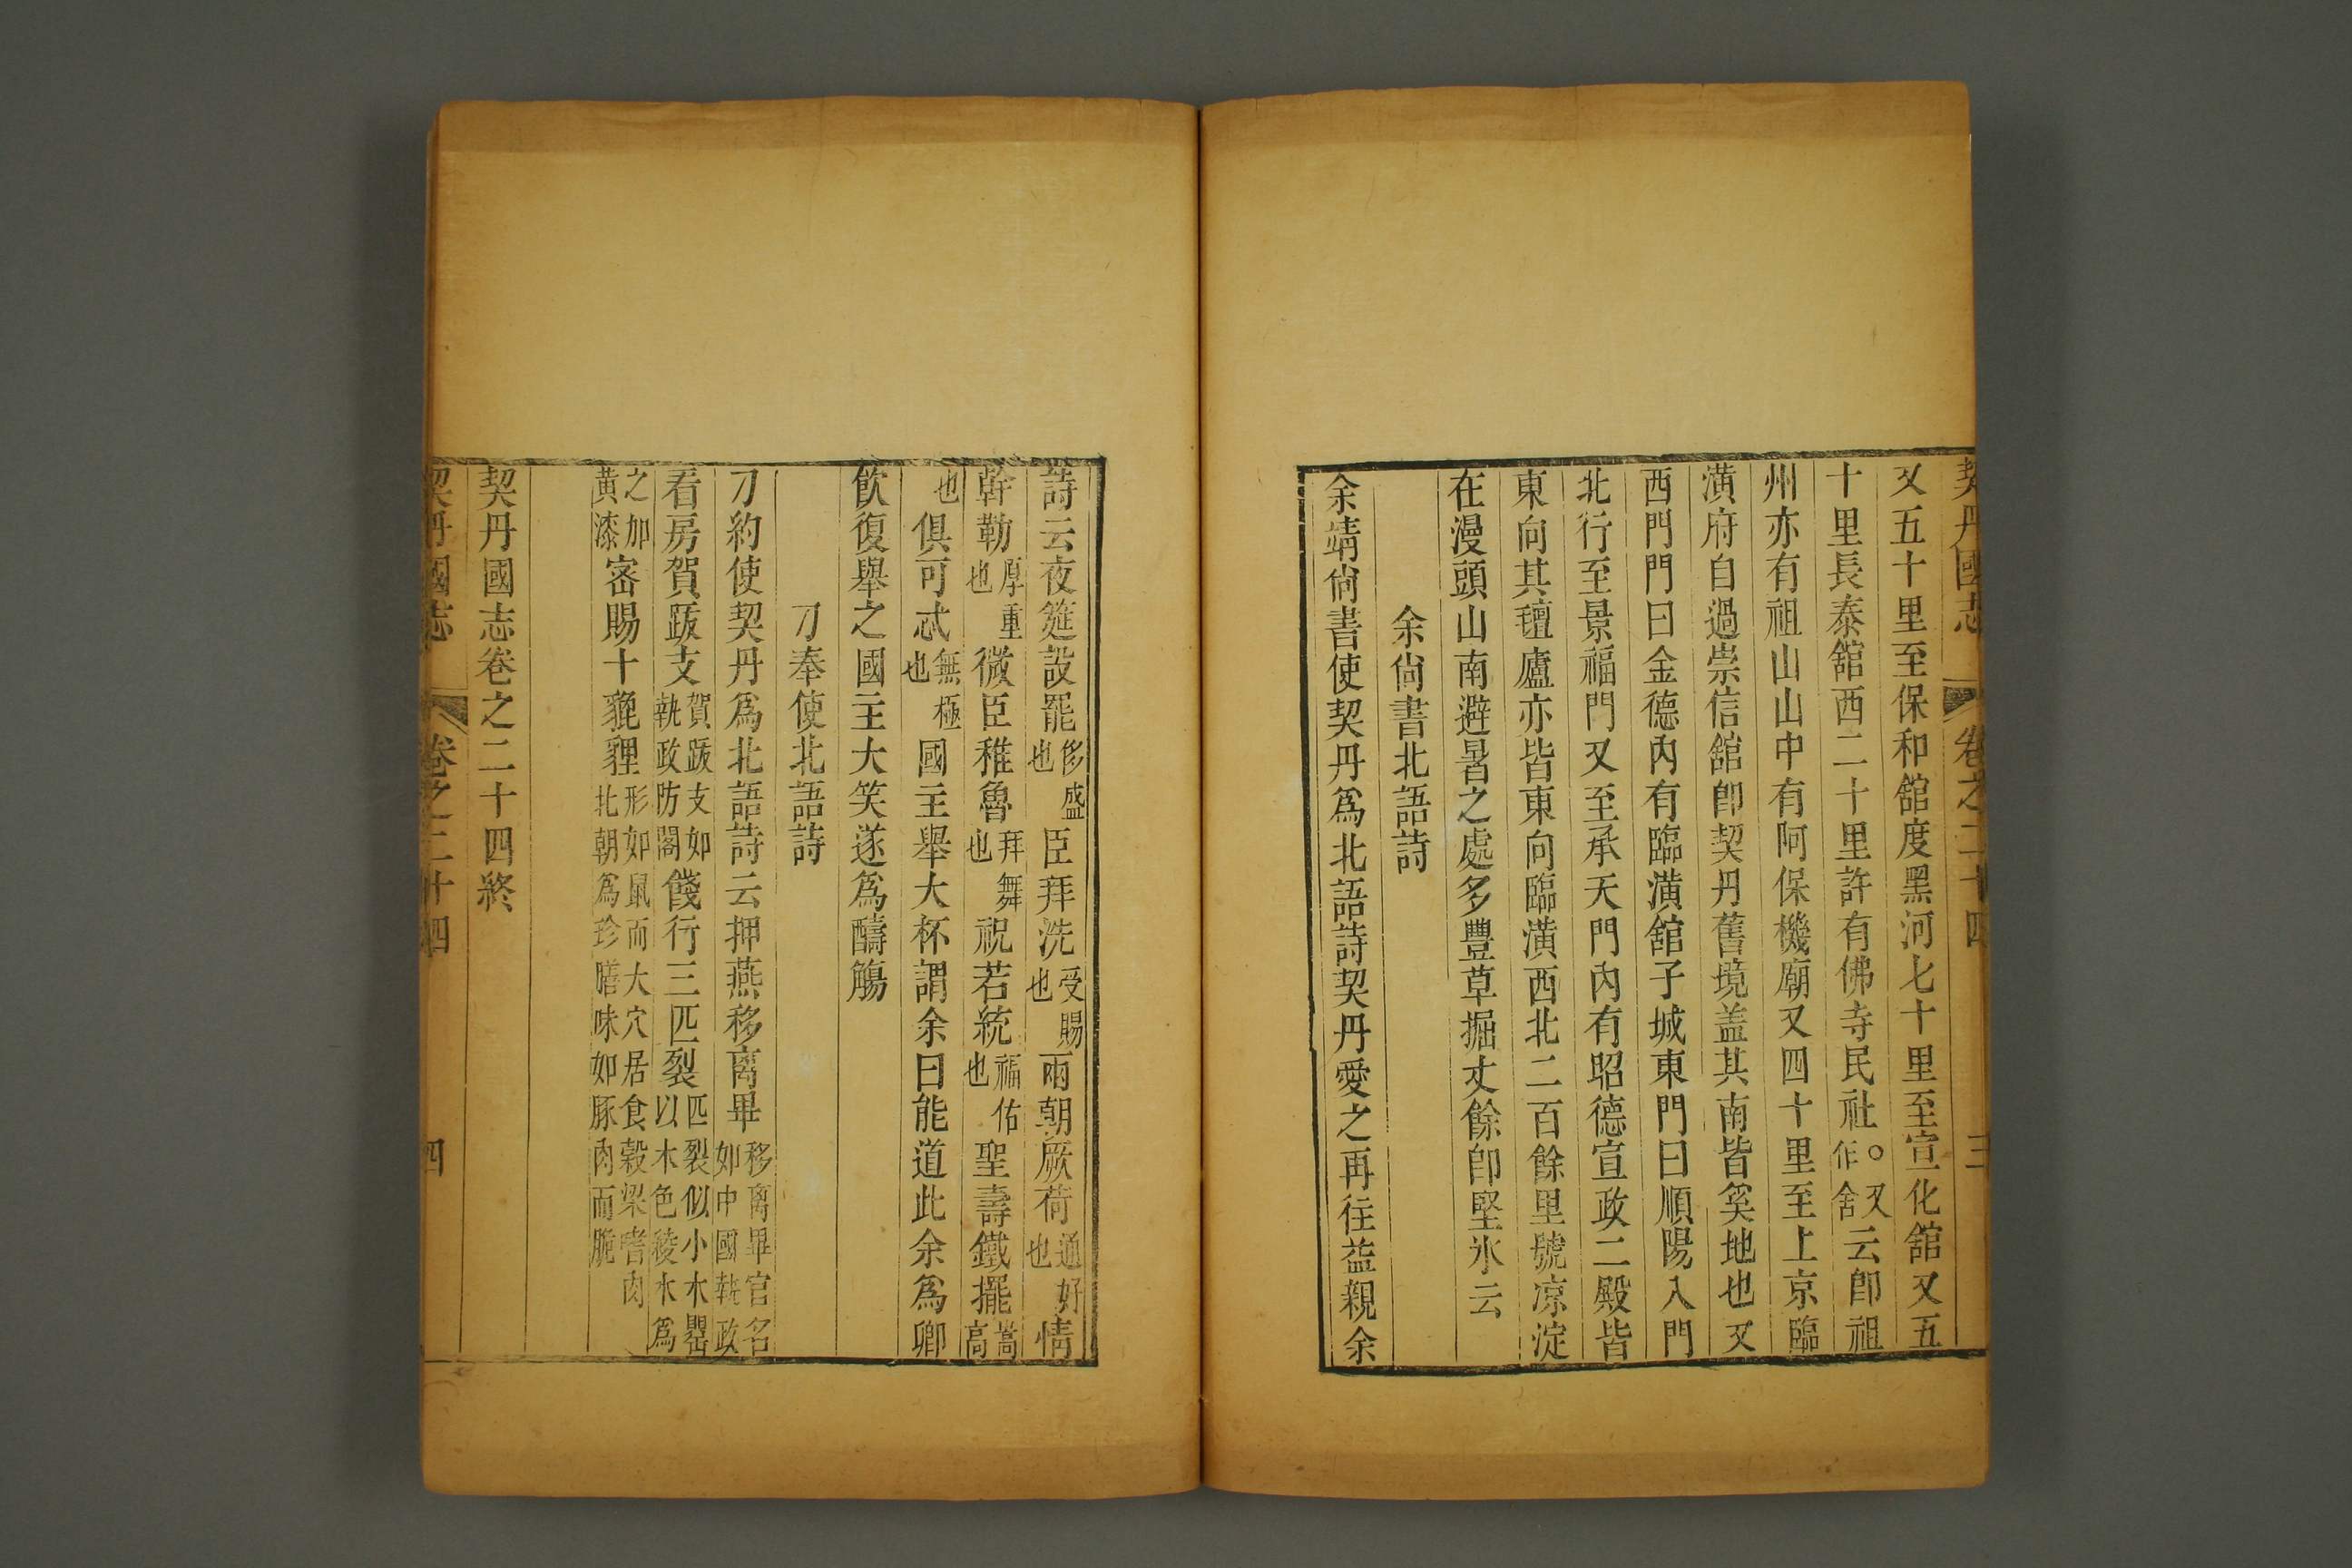 契丹國志 卷之二十四 三
又五十里至保和舘度黑河七十里至宣化舘又五
十里長泰舘西二十里許有佛寺民社。又作舍云卽祖
州亦有祖山山中有阿保機廟又四十里至上京臨
潢府自過崇信舘卽契丹舊境盖其南皆奚地也又
西門門曰金德內有臨潢舘子城東門曰順陽入門
北行至景福門又至承天門內有昭德宣政二殿皆
東向其氊廬亦皆東向臨潢西北二百餘里號凉淀
在漫頭山南避暑之處多豐草掘丈餘卽堅氷云
余尙書北語詩
余靖尙書使契丹爲北語詩契丹愛之再往益親余
詩云夜筵設罷侈盛也臣拜洗受賜也兩朝厥荷通好也情
幹勒厚重也微臣稚魯拜舞也祝若統福佑也聖壽鐵擺嵩高
也俱可忒無極也國主舉大杯謂余曰能道此余爲卿
飲復舉之國主大笑遂爲醻觴
刁奉使北語詩
刁約使契丹爲北語詩云押燕移离畢移离畢官名如中國執政
看房賀跋支賀跋支如執政防閤餞行三匹裂匹裂似小木罌以木色稜木爲
之加黃漆密賜十貔貍形如鼠而大穴居食榖梁嗜肉北朝爲珍膳味如豚肉而脆
契丹國志卷之二十四終
契丹國志 卷之二十四 四